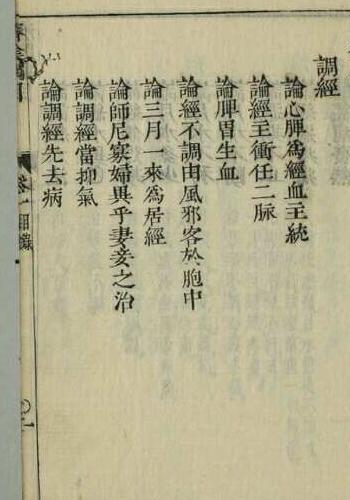 調經
論心脾為經血主統
論經主衝任二脉
論脾胃生血
論經不調由風邪客於胞中
論三月一來為居經
論師尼寡婦異乎妻妾之治
論調經當抑氣
論調經先去病